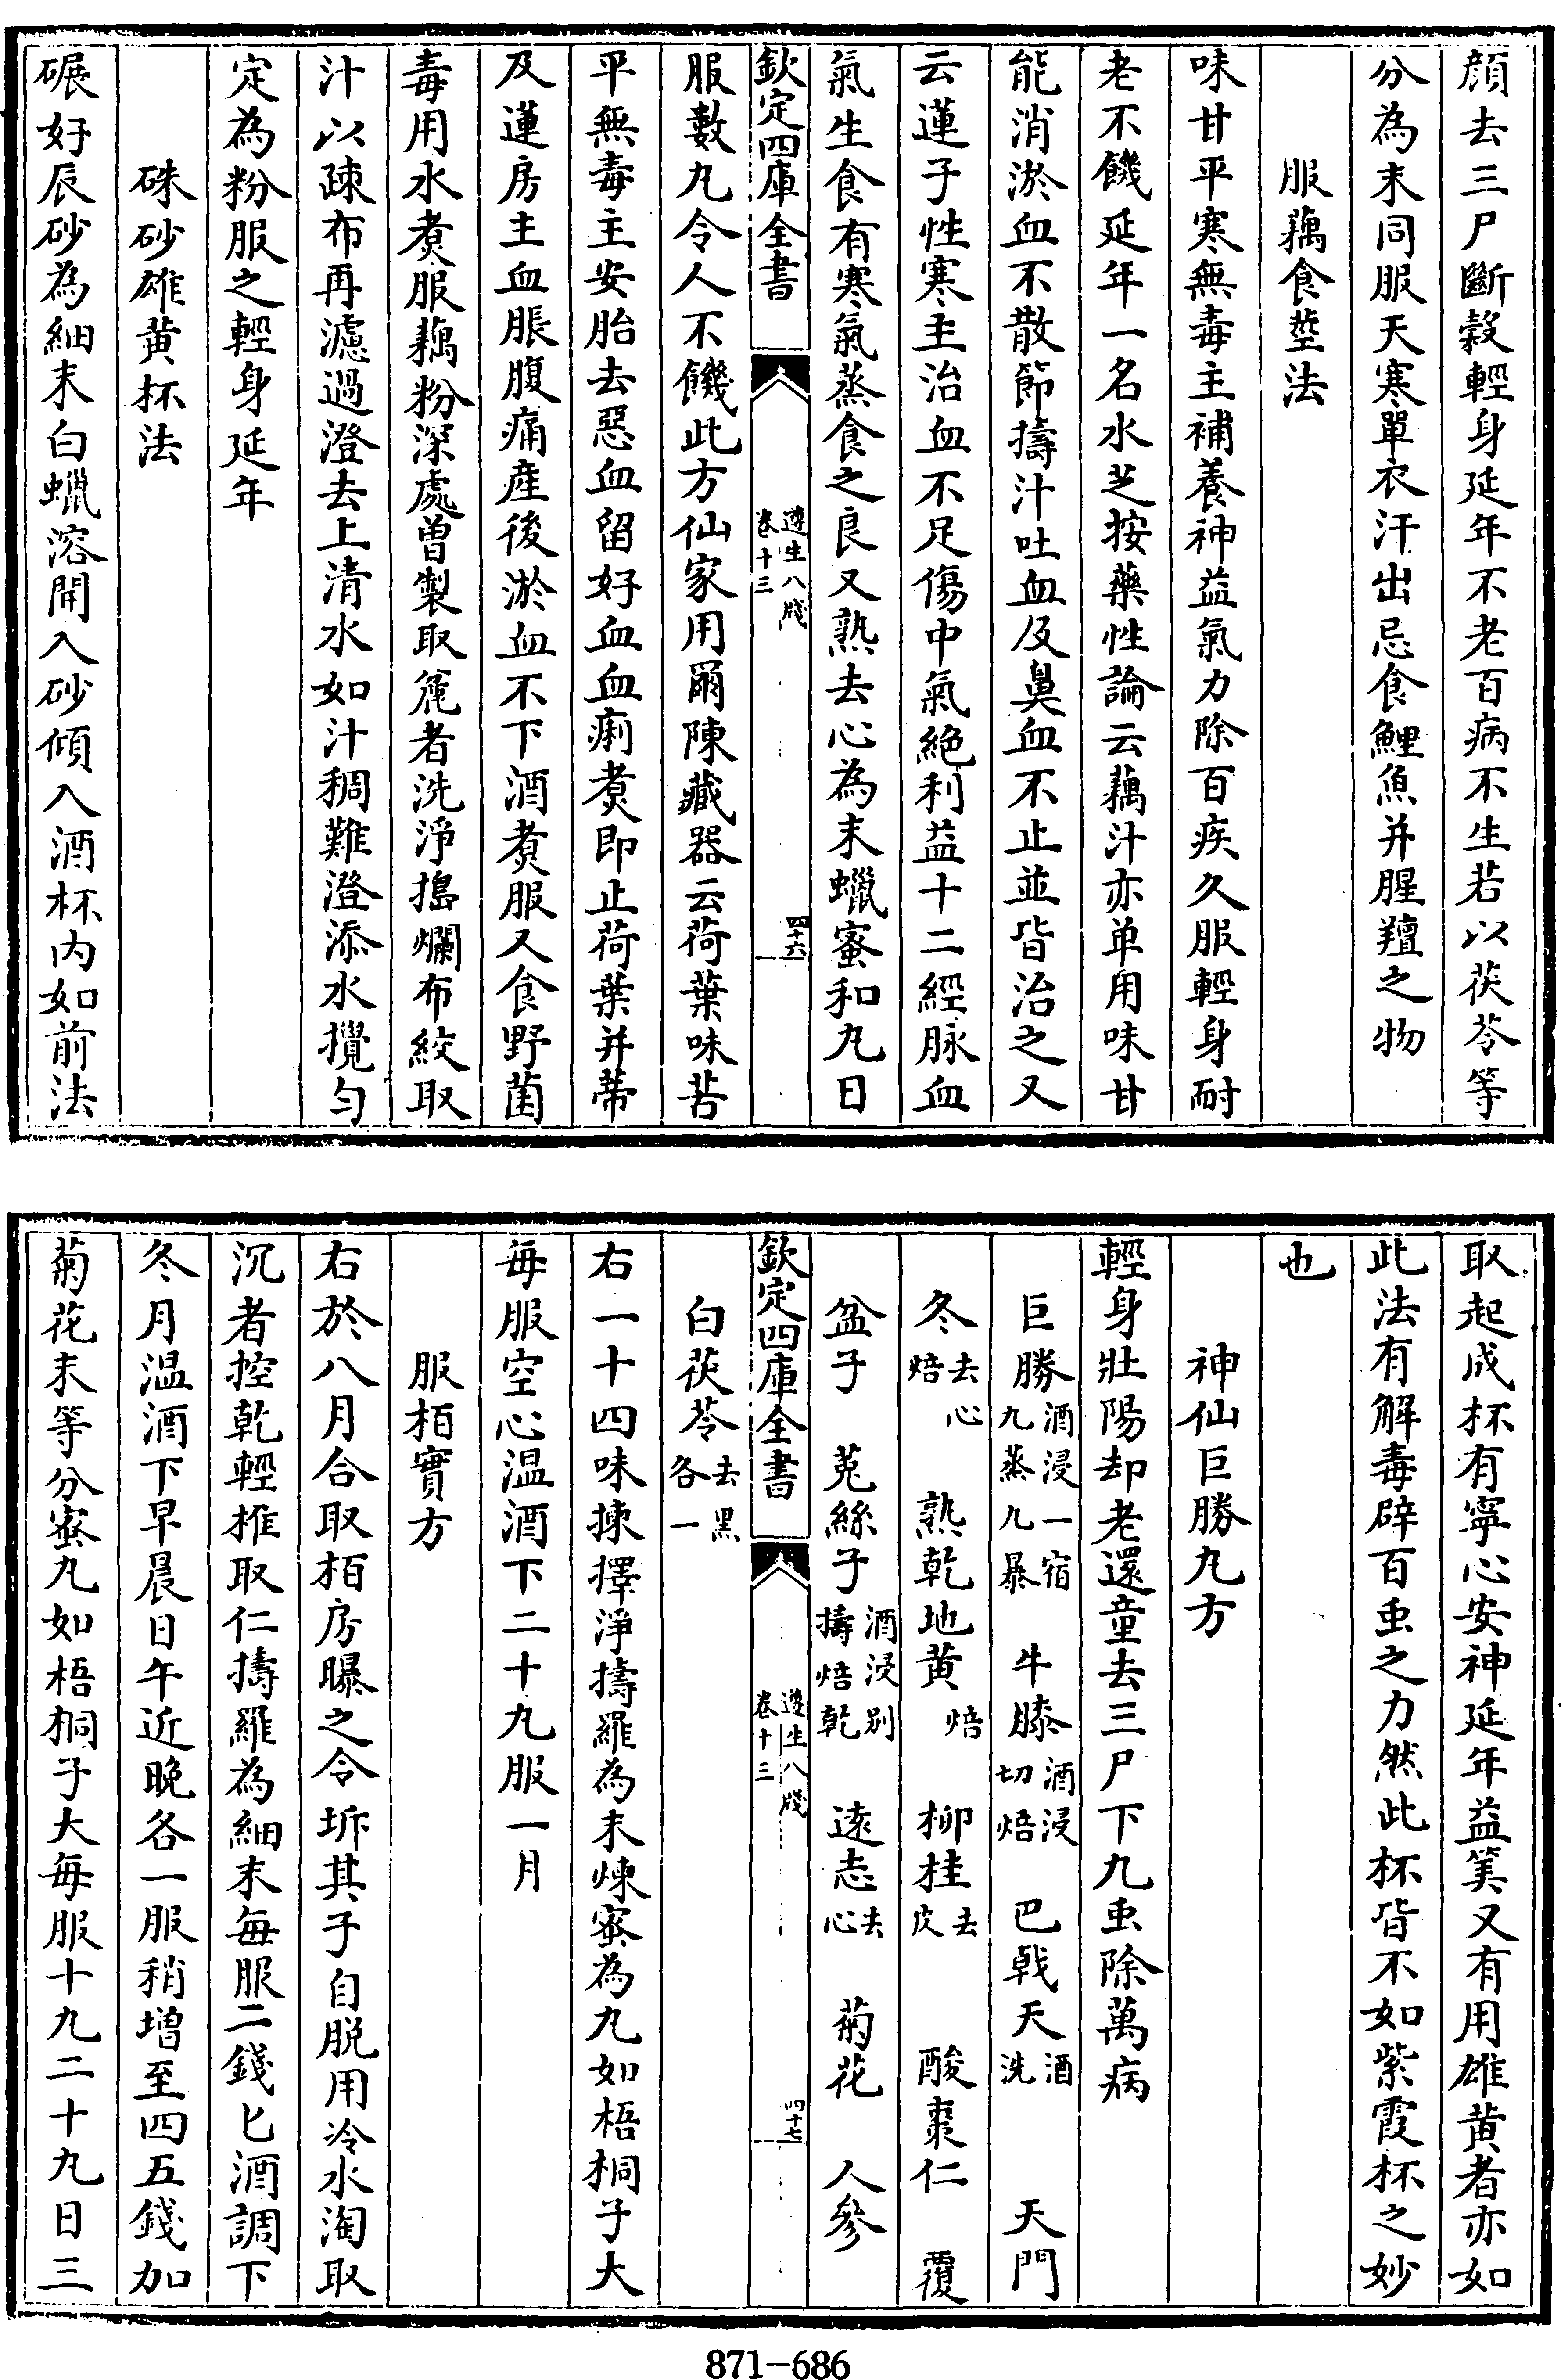 顔去三尸斷穀輕身延年不老百病不生若以茯苓等
分為末同服天寒單衣汗出忌食鯉魚并腥羶之物
服藕食莖法
味甘平寒無毒主補養神益氣力除百疾久服輕身耐
老不饑延年一名水芝按藥性論云藕汁亦单用味甘
能消淤血不散節擣汁吐血及鼻血不止並皆治之又
云蓮子性寒主治血不足傷中氣絶利益十二經脉血
氣生食有寒氣蒸食之良又熟去心為末蠟蜜和丸日
欽定四庫全書
遵生八牋
卷十三
四十六
服數丸令人不饑此方仙家用爾陳藏器云荷葉味苦
平無毒主安胎去惡血留好血血痢煮即止荷葉并蒂
及蓮房主血脹腹痛産後淤血不下酒煮服又食野菌
毒用水煮服藕粉深處曽製取麄者洗淨搗爛布絞取
汁以疎布再濾過澄去上清水如汁稠難澄添水攪勻
定為粉服之輕身延年
硃砂雄黄杯法
碾好辰砂為細末白蠟溶開入砂傾入酒杯内如前法
取起成杯有寧心安神延年益筭又有用雄黄者亦如
此法有解毒辟百虫之力然此杯皆不如紫霞杯之妙
也
神仙巨勝丸方
輕身壯陽却老還童去三尸下九虫除萬病
巨勝酒浸一宿九蒸九暴 牛膝酒浸切焙 巴戟天酒洗 天門
冬去心焙 熟乾地黄焙 柳桂去皮 酸棗仁 覆
盆子 菟絲子酒浸别擣焙乾 逺志去心 菊花 人參
欽定四庫全書
遵生八牋
卷十三
四十七
白茯苓去黑各一
右一十四味揀擇淨擣羅為末煉蜜為丸如梧桐子大
每服空心温酒下二十丸服一月
服栢實方
右於八月合取栢房曝之令坼其子自脱用冷水淘取
沉者控乾輕椎取仁擣羅為細末每服二錢匕酒調下
冬月温酒下早晨日午近晚各一服稍增至四五錢加
菊花末等分蜜丸如梧桐子大每服十丸二十丸日三
871—686